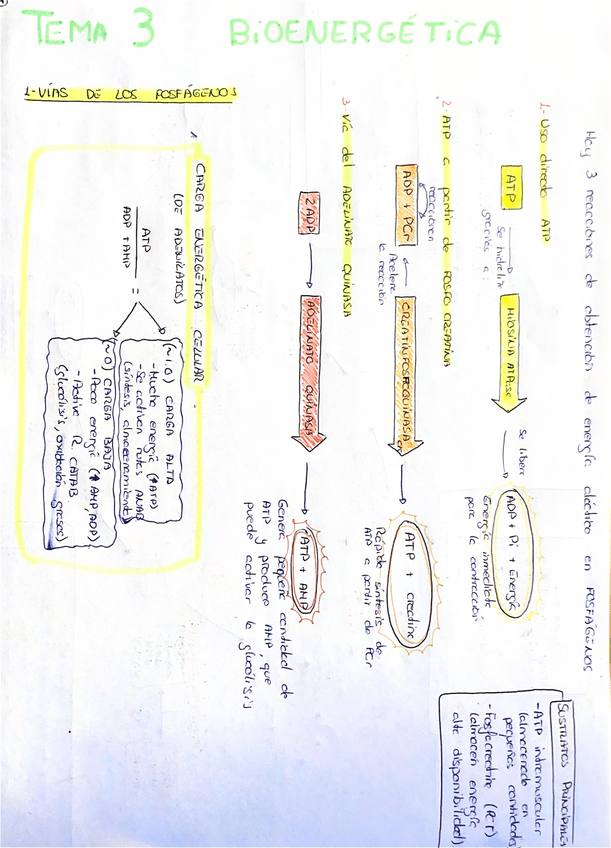 TEMA 3 BIOENERGÉTICA
1-VÍAS DE LOS FOSFÁGENOS
Hay 3 reacciones de obtención de energía aláctico en FOSFÁGENOS
1- USO directo ATP
ATP
se hidroliza
gracias a
MIOSINA ATPasa
Se libera
ADP + Pi + Energía
Energía inmediata
para la contracción
2- ATP a partir de FOSFO CREATINA
ADP + PCr
reaccionan
Acelera
la reacción
CREATINFOSFOQUINASA
ATP + creatina
Rápida síntesis de
ATP a partir de PCr
3- Vía del ADELINATO QUINASA
2ADP
ADELINATO QUINASA
ATP + AMP
Genera pequeña cantidad de
ATP y produce AMP, que
puede activar la glucólisis
SUSTRATOS PRINCIPALES
- ATP intramuscular
(almacenado en
pequeñas cantidades)
- Fosfocreatina
(almacen energía
alta disponibilidad)
CARGA ENERGÉTICA CELULAR
(DE ADENILATOS)
ATP
ADP + AMP
=
(~1.0) CARGA ALTA
- Mucha energía (↑ATP)
- Se activan rutas ANAB
(síntesis, almacenamiento)
(~0) CARGA BAJA
- Poca energía (↑AMP, ADP)
- Activa R. CATAB
(glucólisis, oxidación grasas)